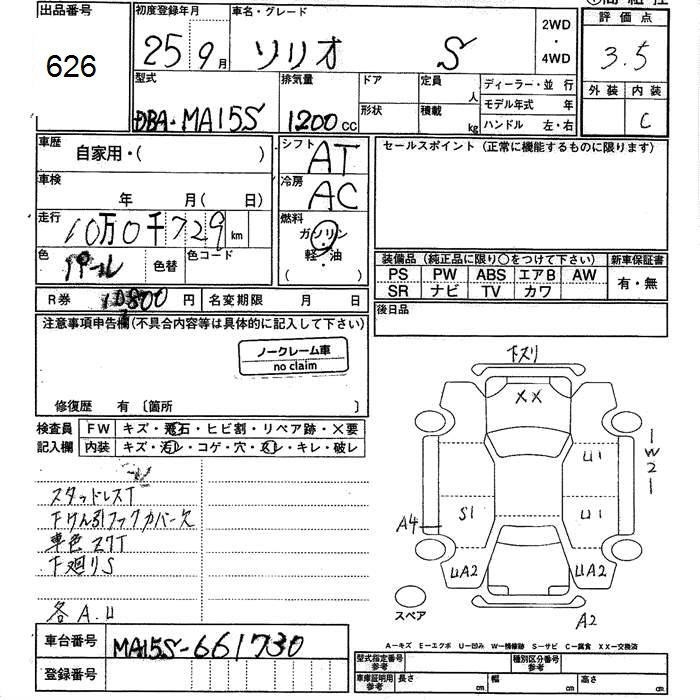 出品番号
626
初度登録年月
25年9月
車名・グレード
ソリオ S
2WD
・
4WD
評価点
3.5
外装 内装
C
型式
DBA-MA15S
排気量
1200cc
ドア
形状
定員
人
積載
kg
ディーラー・並行
モデル年式 年
ハンドル 左・右
車歴
自家用・( )
車検
年 月( 日)
走行
10万0千729km
色
パール
色替
色コード
シフト
AT
冷房
AC
燃料
ガソリン
軽・油
( )
セールスポイント (正常に機能するものに限ります)
装備品 (純正品に限り○をつけて下さい)
PS PW ABS エアB AW
SR ナビ TV カワ
新車保証書
有・無
R券 10800円
名変期限 月 日
後日品
注意事項申告欄(不具合内容等は具体的に記入して下さい)
ノークレーム車
no claim
修復歴 有 〔箇所 〕
検査員
記入欄
FW キズ・飛石・ヒビ割・リペア跡・×要
内装 キズ・汚レ・コゲ・穴・スレ・キレ・破レ
スタッドレスT
下けん引フックカバー欠
単色スプT
下廻りS
各A.U
下スリ
XX
U1
W2
S1
U1
A4
UA2
UA2
A2
スペア
A-キズ E-エクボ U-凹み W-補修跡 S-サビ C-腐食 XX-交換済
車台番号
MA15S-661730
登録番号
型式指定番号
参考
種別区分番号
参考
車庫証明用
参考
長さ cm
幅 cm
高さ cm